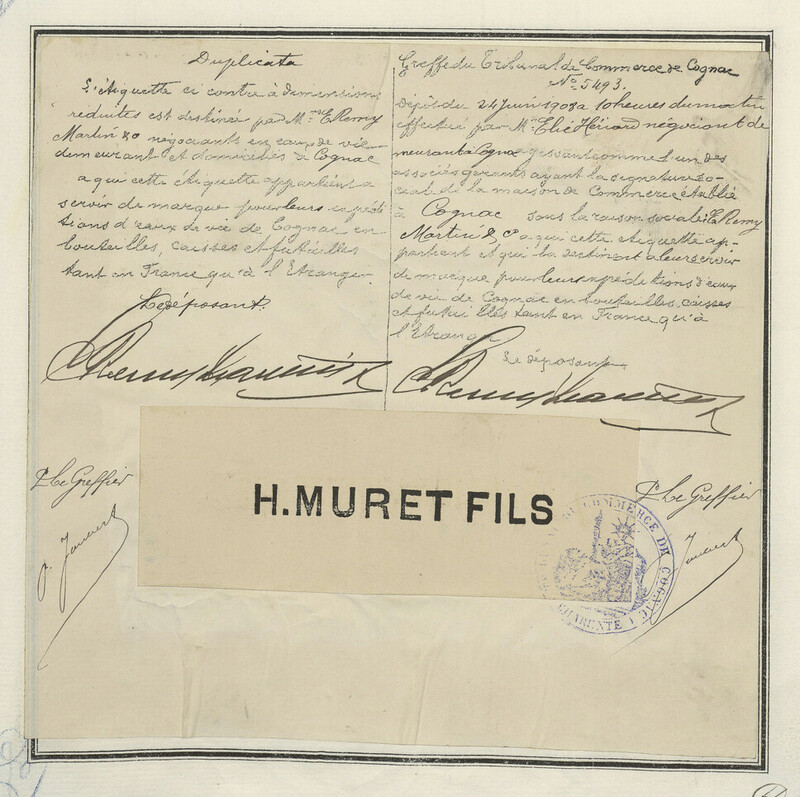 Duplicata
L'étiquette ci contre à dimensions
réduites est destinée par M.rs E. Remy
Martin & Co négociants en eaux de vie
demeurant et domiciliés à Cognac
a qui cette étiquette appartient a
servir de marque pour leurs expédi
tions d'eaux de vie de Cognac en
bouteilles, caisses et futailles
tant en France qu'à l'Etranger
Le déposant
Greffe du Tribunal de Commerce de Cognac
No. 5493.
Dépôt du 24 Juin 1908 a 10 heures du matin
effectué par M. Elie Hériard négociant de
meurant à Cognac gissant comme l'un des
associés gérants ayant la signature so-
ciale de la maison de Commerce établie
à Cognac sous la raison sociale E. Remy
Martin & Co a qui cette étiquette ap-
partient et qui la destinent a leur servir
de marque pour leurs expéditions d'eaux
de vie de Cognac en bouteilles, caisses
et futailles tant en France qu'à
l'Etrang
Le déposant
E Remy Martin &
E Remy Martin &
P. Le Greffier
P. Le Greffier
H. MURET FILS
COMMERCE DE COGNAC
CHARENTE